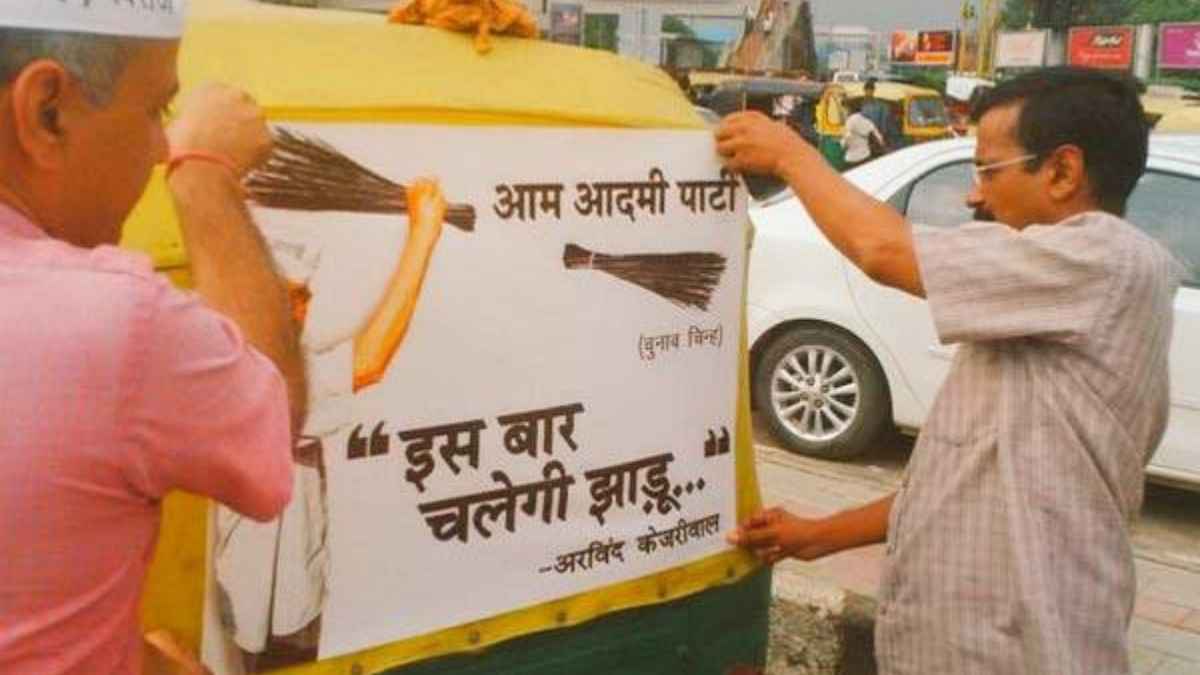 आम आदमी पार्टी
(चुनाव चिन्ह)
“इस बार
चलेगी झाड़ू...”
-अरविंद केजरीवाल